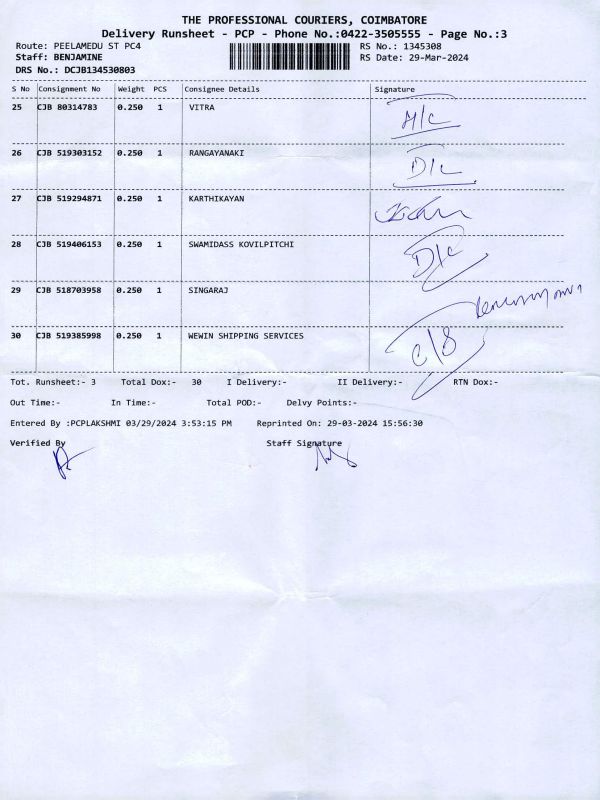 THE PROFESSIONAL COURIERS, COIMBATORE
Delivery Runsheet - PCP - Phone No.:0422-3505555 - Page No.:3
Route: PEELAMEDU ST PC4
RS No.: 1345308
Staff: BENJAMINE
RS Date: 29-Mar-2024
DRS No.: DCJB134530803
S No Consignment No Weight PCS Consignee Details Signature
25 CJB 80314783 0.250 1 VITRA A/C
26 CJB 519303152 0.250 1 RANGAYANAKI D/L
27 CJB 519294871 0.250 1 KARTHIKAYAN
28 CJB 519406153 0.250 1 SWAMIDASS KOVILPITCHI D/C
29 CJB 518703958 0.250 1 SINGARAJ
30 CJB 519385998 0.250 1 WEWIN SHIPPING SERVICES C/8
Tot. Runsheet:- 3 Total Dox:- 30 I Delivery:- II Delivery:- RTN Dox:-
Out Time:- In Time:- Total POD:- Delvy Points:-
Entered By :PCPLAKSHMI 03/29/2024 3:53:15 PM Reprinted On: 29-03-2024 15:56:30
Verified By Staff Signature